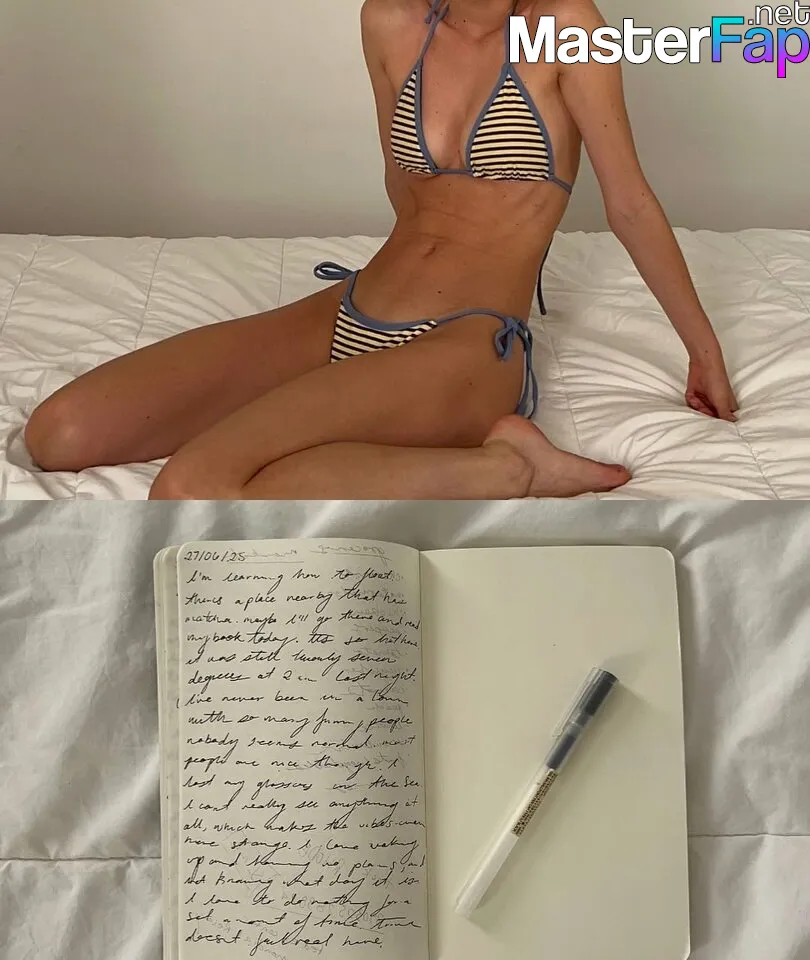 MasterFap.net
27/06/25
I'm learning how to float.
there's a place nearby that has
matcha. maybe I'll go there and read
my book today. It's so hot here
it was still twenty seven
degrees at 2 am last night.
I've never been in a town
with so many funny people
nobody seems normal. most
people are nice though. I
lost my glasses in the sea.
I can't really see anything at
all, which makes the vibes even
more strange. I love waking
up and having no plans, and
not knowing what day it is
I love to do nothing for a
set amount of time. time
doesn't feel real here.